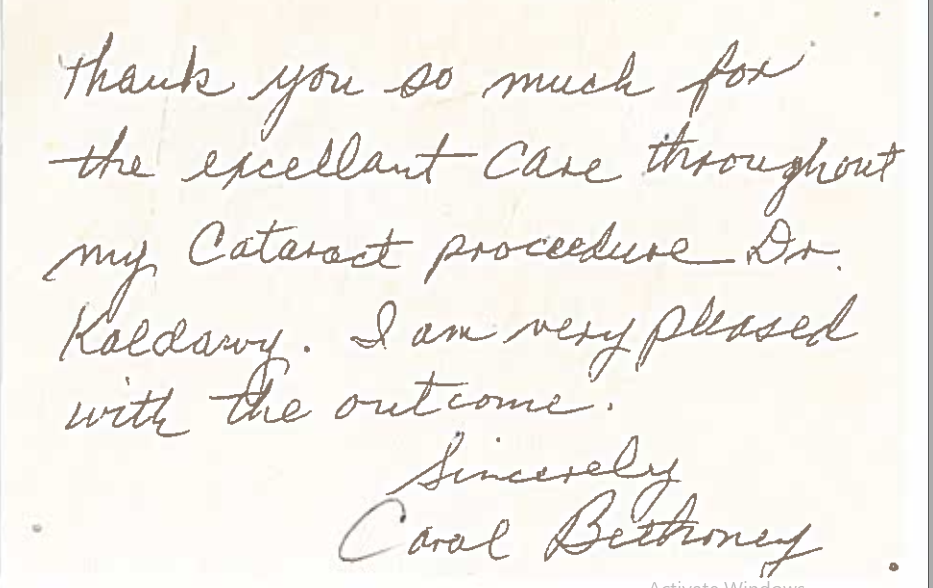 thank you so much for
the excellant Care throughout
my Cataract proceedure Dr.
Kaldawy. I am very pleased
with the outcome.
Sincerely
Carol Bethoney
Activate Windows